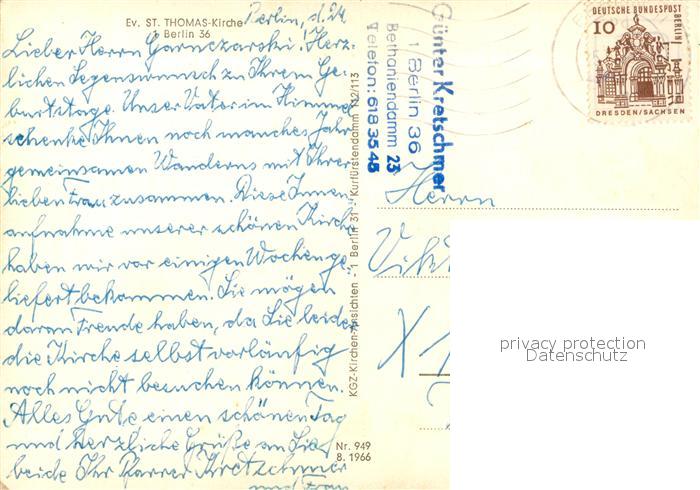 Ev. ST. THOMAS-Kirche
1 Berlin 36
Berlin, d. 24.
Lieber Herrn Garnczarski! Herz-
lichen Segenswunsch zu Ihrem Ge-
burtstage. Unser Vater im Himmel
schenke Ihnen noch manches Jahr
gemeinsamen Wanderns mit Ihrer
lieben Frau zusammen. Diese Innen-
aufnahme unserer schönen Kirche
haben wir vor einigen Wochen ge-
liefert bekommen. Sie mögen
daran Freude haben, da Sie leider
die Kirche selbst vorläufig
noch nicht besuchen können.
Alles Gute, einen schönen Tag
und herzliche Grüße an Sie
beide Ihr Pfarrer Kretschmer
und Frau
Nr. 949
8. 1966
KGZ-Kirchen-Ansichten - 1 Berlin 31 - Kurfürstendamm 112/113
Günter Kretschmer
1 Berlin 36
Bethaniendamm 23
Telefon: 618 35 45
DEUTSCHE BUNDESPOST
BERLIN
10
DRESDEN/SACHSEN
Herrn
X 1
privacy protection
Datenschutz